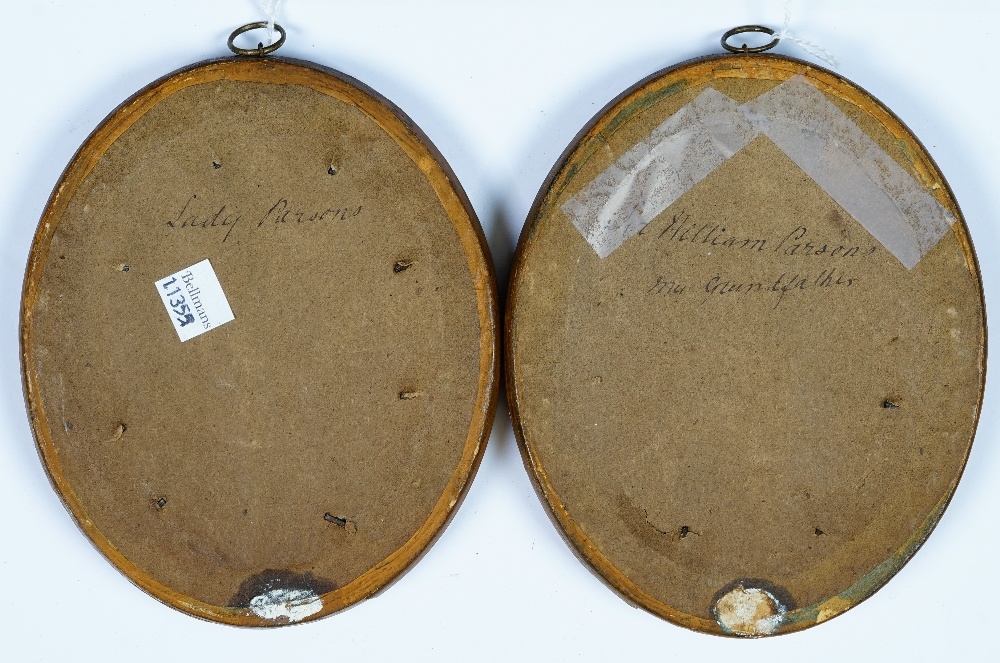 Lady Parsons
Bellmans
L1355
William Parsons
my Grandfather